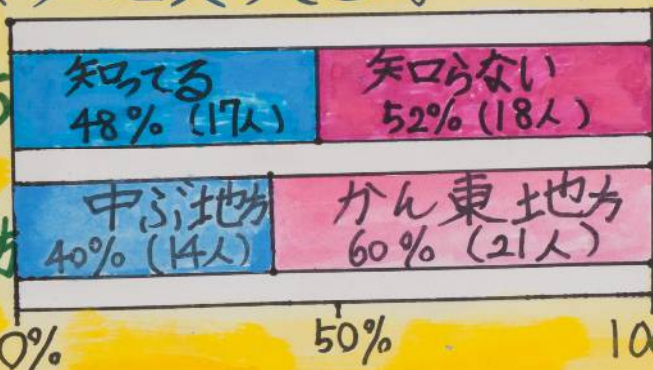 知ってる
48% (17人)
知らない
52% (18人)
中ぶ地方
40% (14人)
かん東地方
60% (21人)
0%
50%